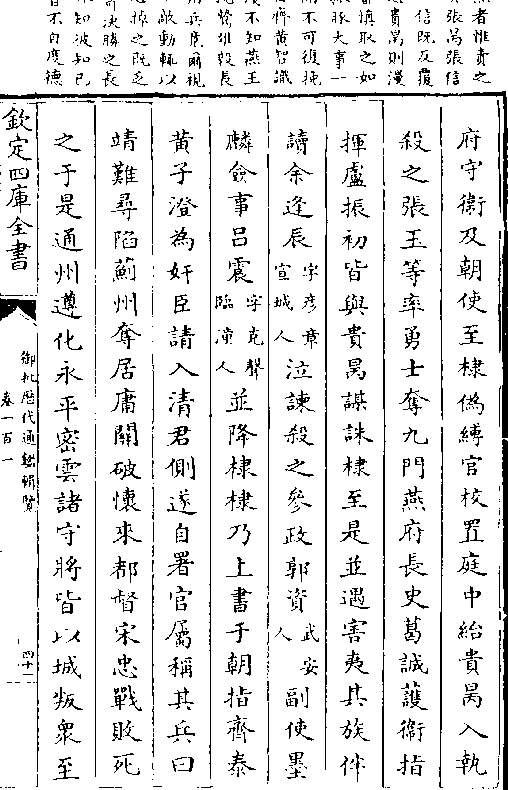 者惟責之
張昺張信
信既反覆
責昺則漫
慎取之如
豚大事一
而不可復挽
齊黄智識
不知燕王
兵虜爾視
敵動輒以
决勝之長
知彼知已
不自度德
府守衞及朝使至棣僞縛官校置庭中紿貴昺入執
殺之張玉等率勇士奪九門燕府長史葛誠護衞指
揮盧振初皆與貴昺謀誅棣至是並遇害夷其族伴
讀余逢辰字彦章宣城人泣諫殺之參政郭資武安人副使墨
麟僉事吕震字克聲臨潼人並降棣棣乃上書于朝指齊泰
黄子澄為奸臣請入清君側遂自署官屬稱其兵曰
靖難尋陷薊州奪居庸關破懷來都督宋忠戰敗死
之于是通州遵化永平密雲諸守將皆以城叛衆至
欽定四庫全書
御批歷代通鑑輯覽
卷一百一
四十一